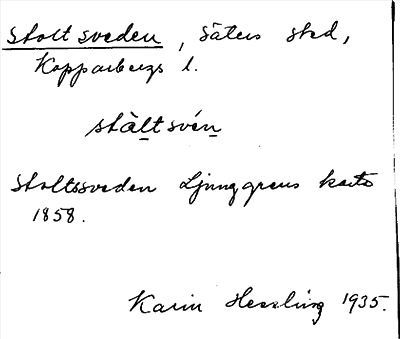 Stoltsveden, Säters stad,
Kopparbergs l.
stὰltsvén
Stoltssveden Ljunggrens karta
1858.
Karin Hessling 1935.